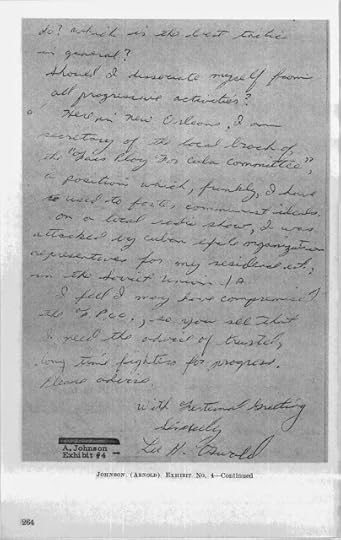 do? Which is the best tactic
in general?
Should I dissociate myself from
all progressive activities?
Here in New Orleans, I am
secretary of the local brach of
the "Fair Play For Cuba Committee",
a position which, frankly, I have
used to foster communist ideals.
on a local radio show, I was
attacked by cuban exile organization
representatives for my residence ect.,
in the Soviet Union.
I feel I may have compromised
the F.P.C.C., so you see that
I need the advice of trusted,
long time fighters for progress.
Please advise.
With Fraternal Greeting
Sincerely
Lee H. Oswald
A. Johnson
Exhibit #4
JOHNSON (ARNOLD) EXHIBIT NO. 4—Continued
264